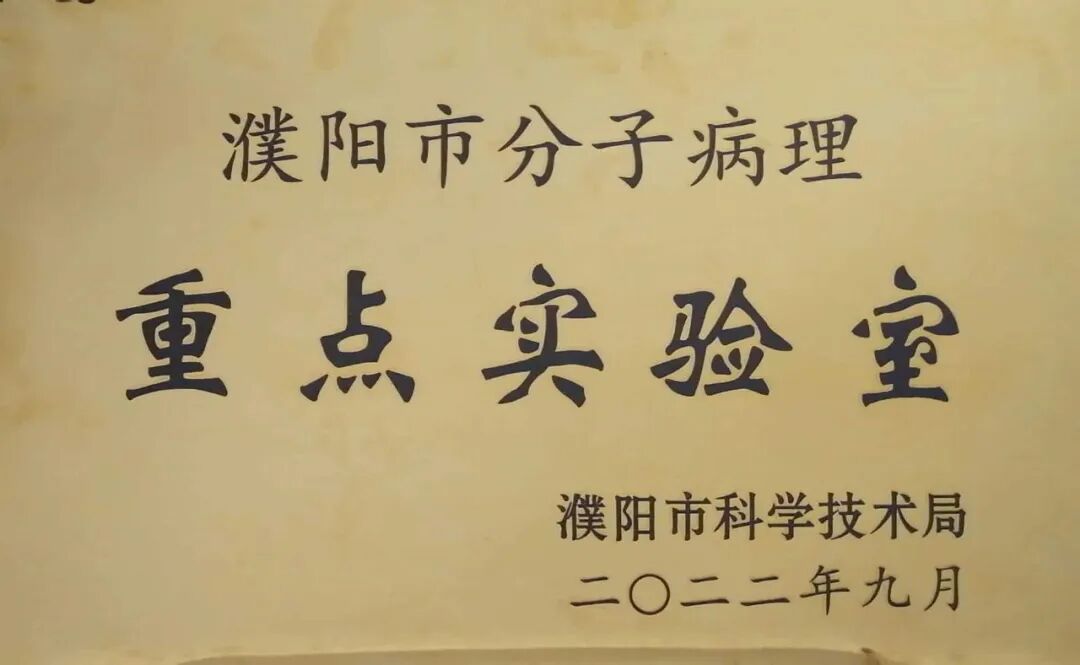 濮阳市分子病理
重点实验室
濮阳市科学技术局
二〇二二年九月